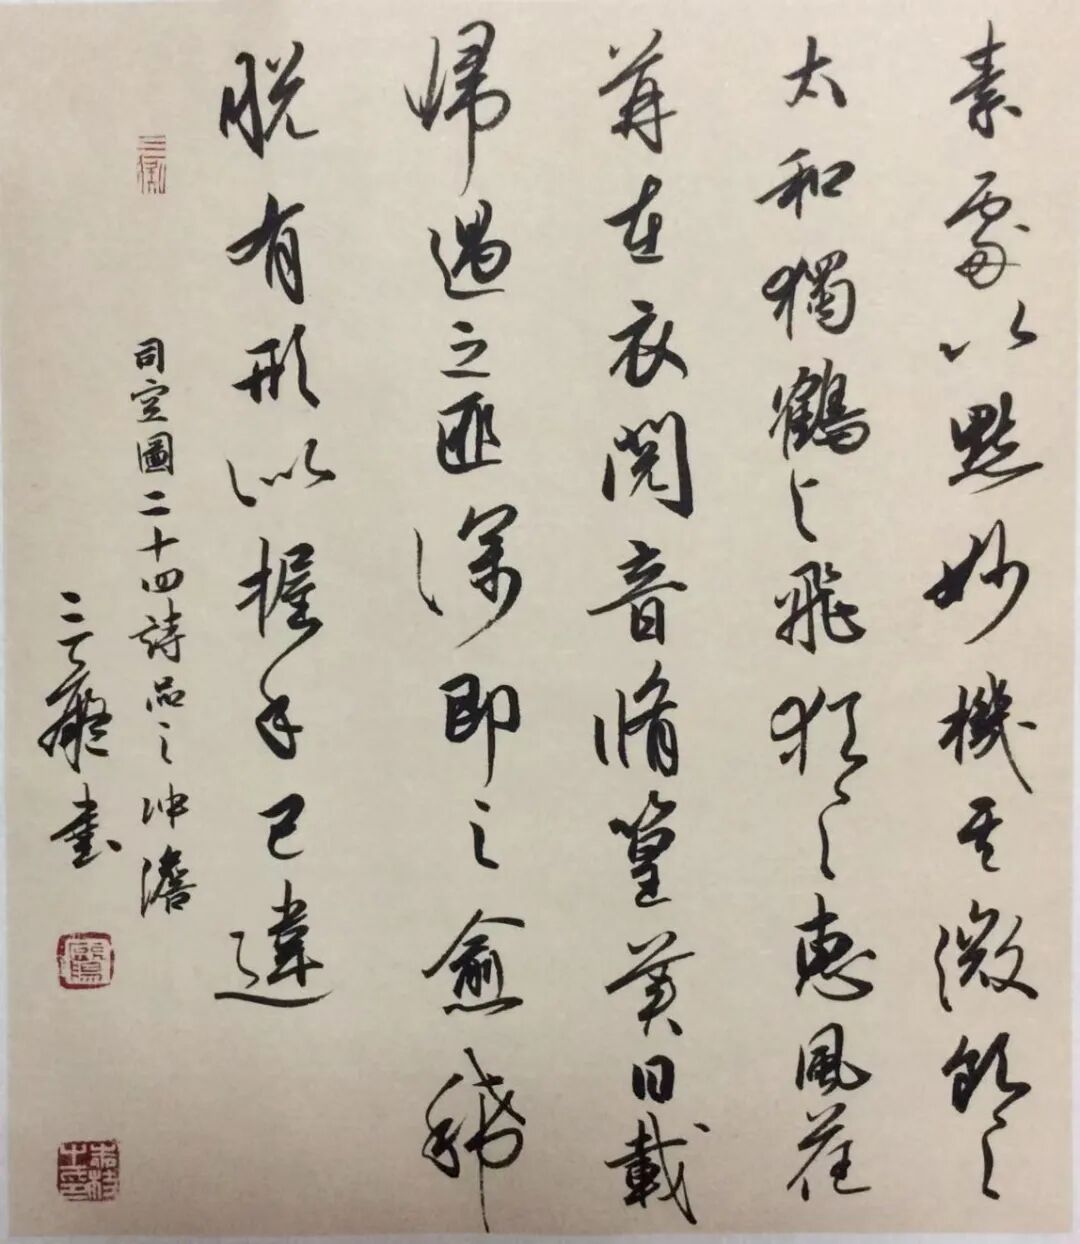 素處以默妙機其微飲之
太和獨鶴与飛猶之惠風荏
苒在衣閱音脩篁美曰載
歸遇之匪深即之愈稀
脫有形似握手已違
司空圖二十四詩品之沖澹
書